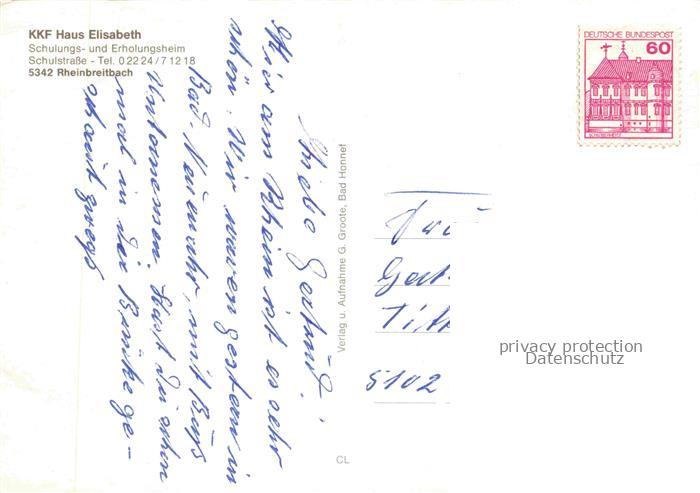 KKF Haus Elisabeth
Schulungs- und Erholungsheim
Schulstraße - Tel. 02224/71218
5342 Rheinbreitbach
Liebe Gertrud!
Hier am Rhein ist es sehr
schön. Wir waren gestern in
Bad Neuenahr, mit Bus
Unternommen. Hast du schon
mal in der Brücke ge-
schaut
Verlag u. Aufnahme G. Groote, Bad Honnef
CL
DEUTSCHE BUNDESPOST
60
Gert
5102
privacy protection
Datenschutz